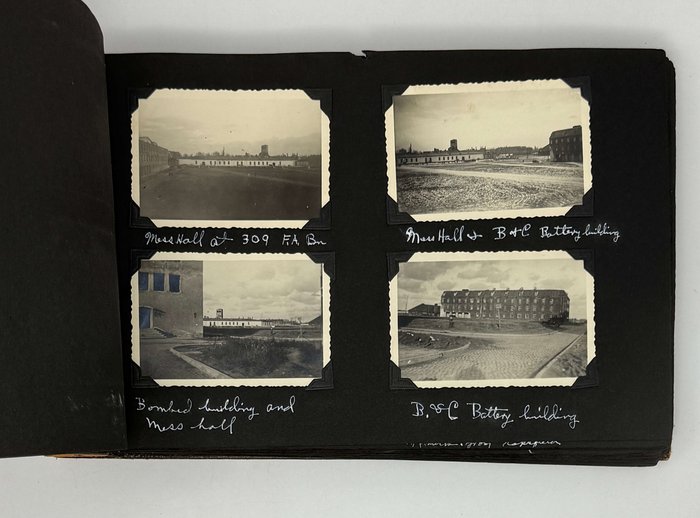 Mess Hall at 309 F.A. Bn
Mess Hall & B & C Battery building
Bombed building and
Mess hall
B. & C Battery building